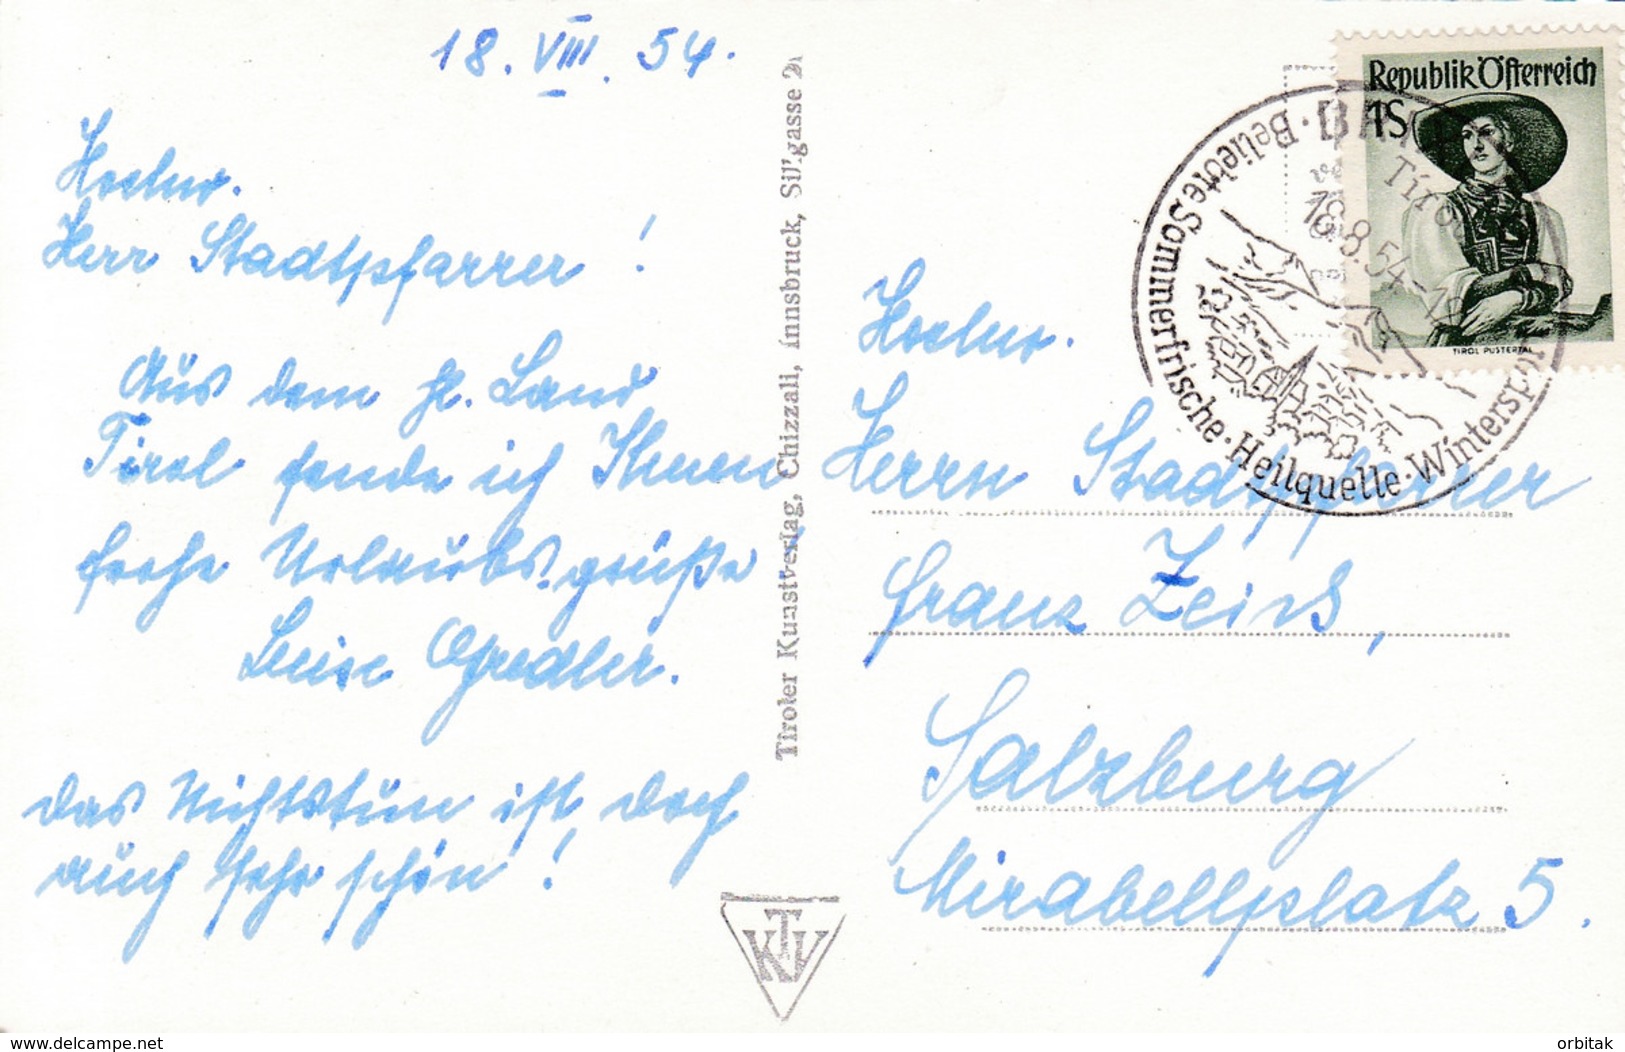 18. VIII. 54.
Hochw.
Herr Stadtpfarrer !
Aus dem hl. Land
Tirol sende ich Ihnen
frohe Urlaubsgrüße
Luise Gredler.
das Nichtstun ist doch
auch sehr schön !
Tiroler Kunstverlag, Chizzali, Innsbruck, Sillgasse 2
KTV
Republik Österreich
1S
TIROL PUSTERTAL
Tirol
18.8.54-1
Beliebte Sommerfrische · Heilquelle · Wintersport
Hochw.
Herrn Stadtpfarrer
Franz Zeiss,
Salzburg
Mirabellplatz 5.
www.delcampe.net
orbitak